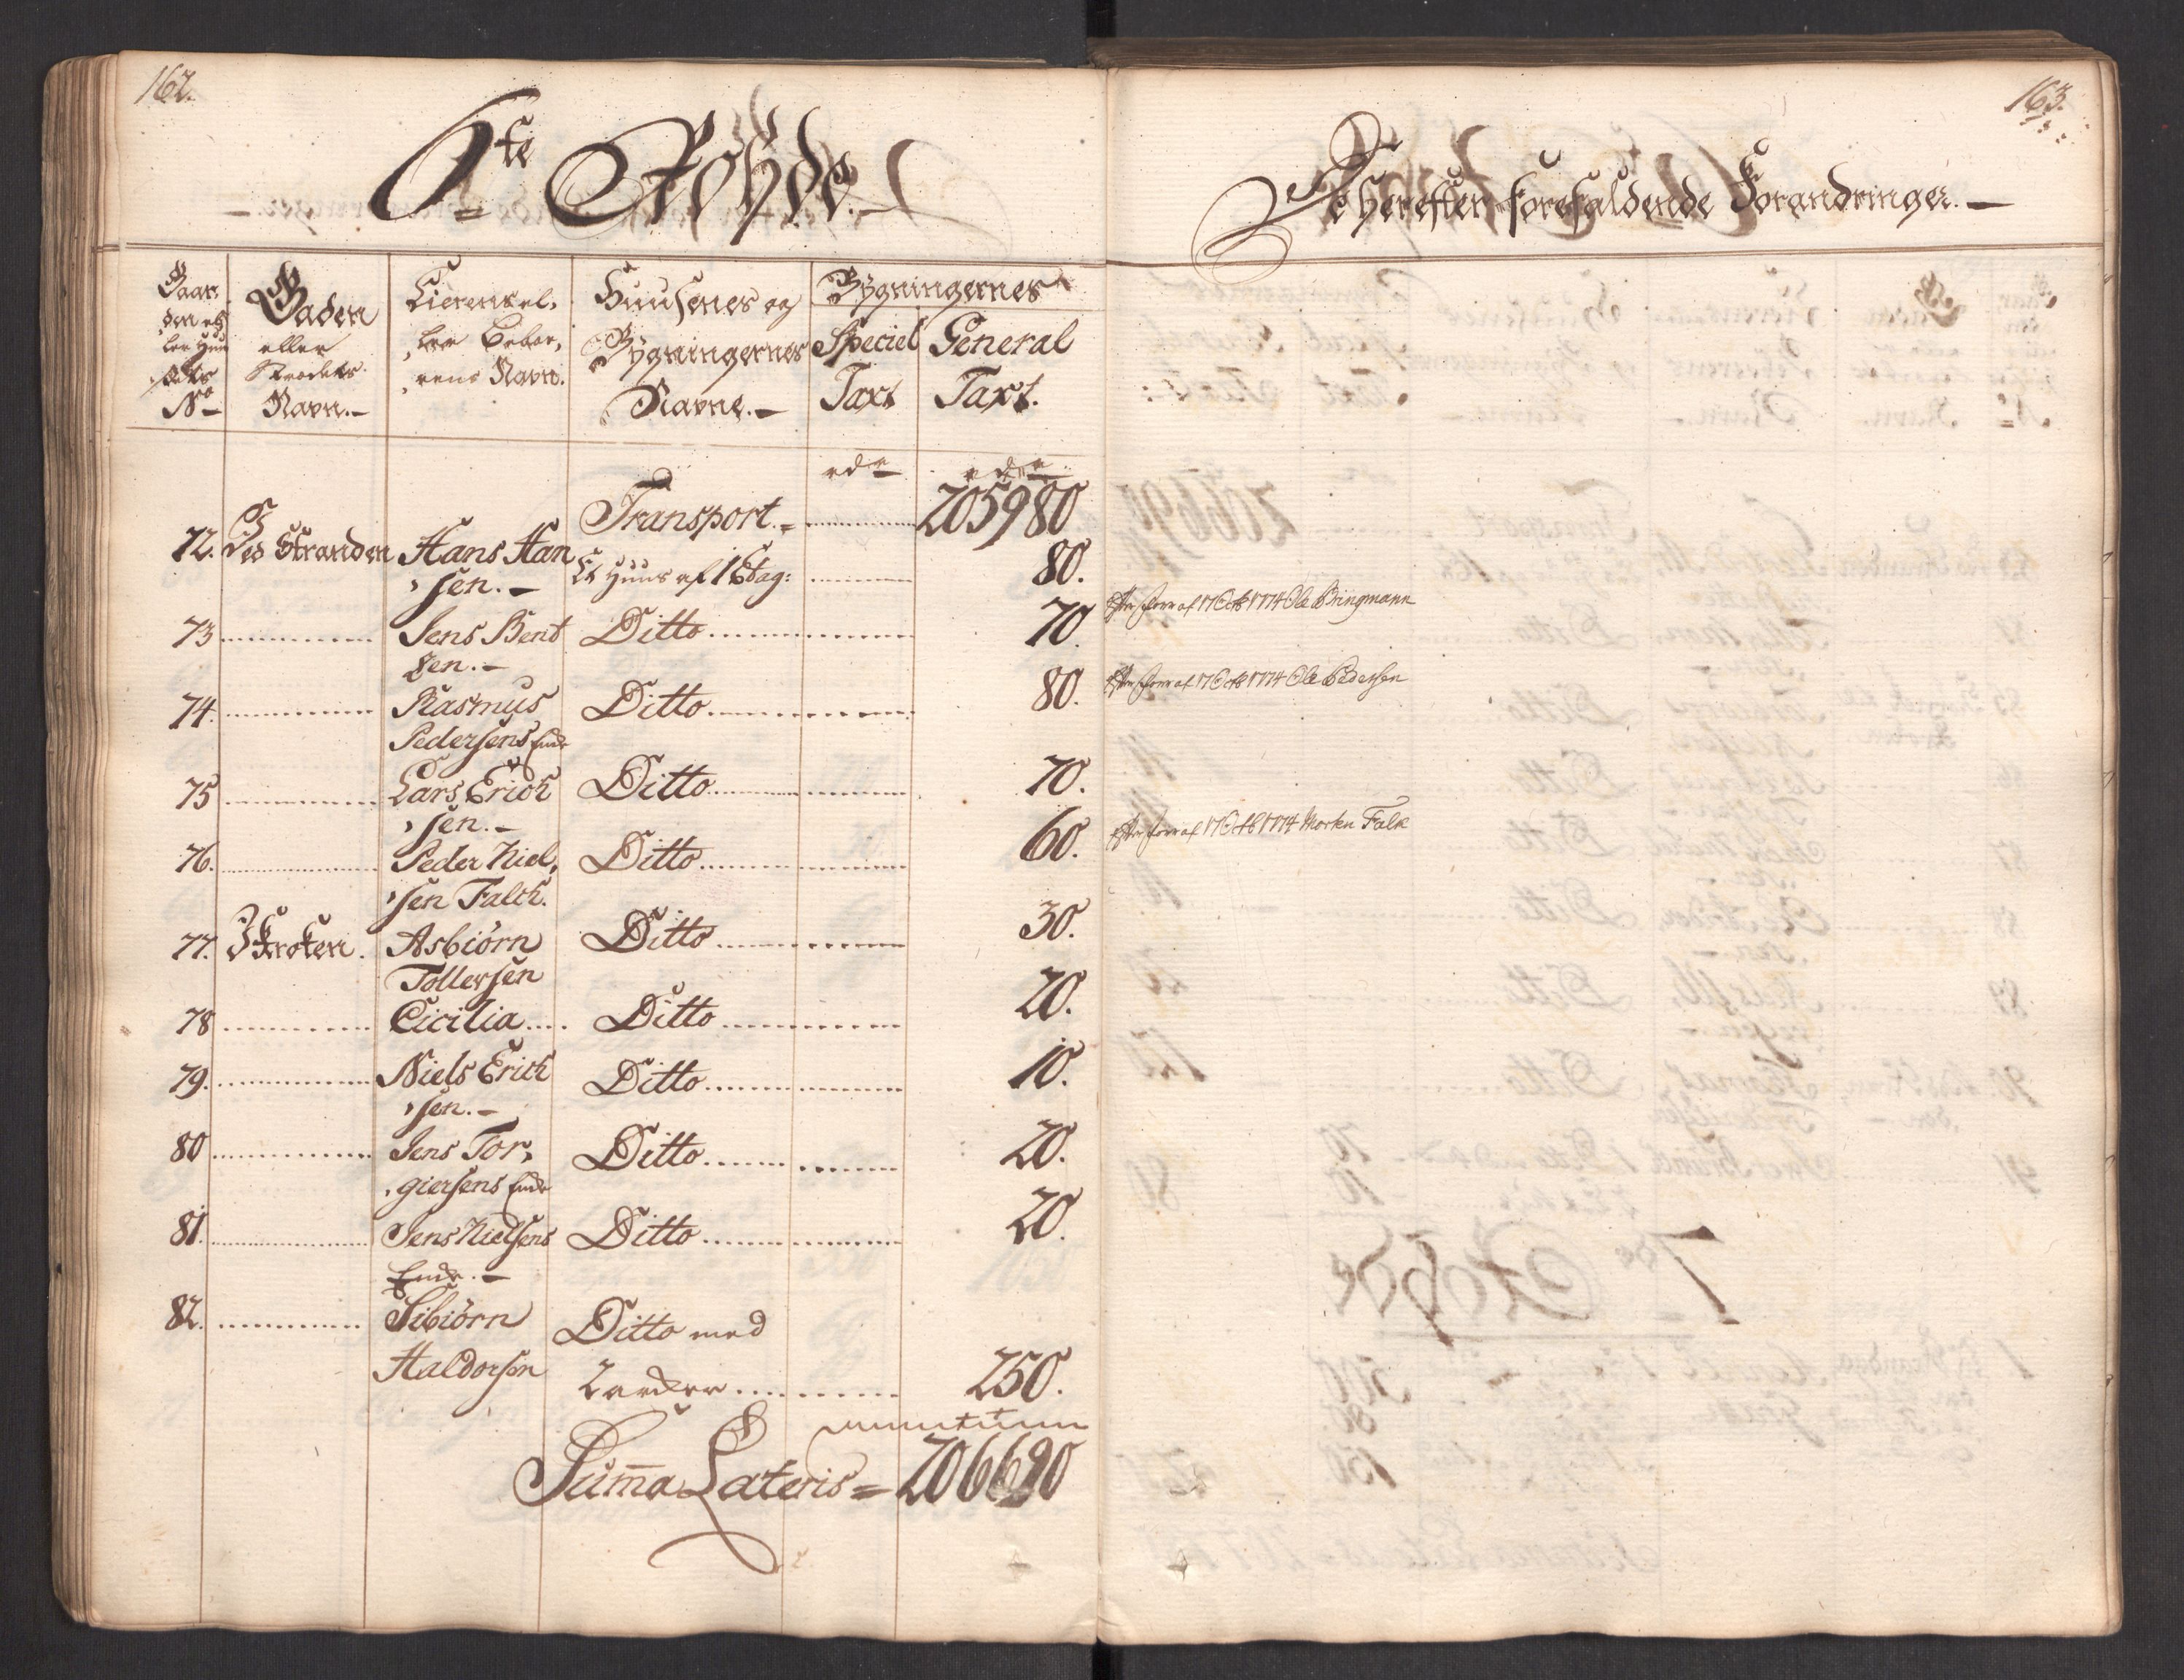 162.
6te Rohde.
Gaar-
den el-
ler Huu-
sets
No
Gaden
eller
Strædets
Navn.
Eierens el-
ler Beboe-
rens Navn.
Huusenes og
Bygningernes
Navne.
Bygningernes
Speciel
Taxt
General
Taxt.
rdr
rdr
Transport. 205980
72. Ved Stranden Hans Han
sen. Et Huus af 1 Etag: 80.
73 Jens Bent
sen. Ditto 70.
74. Rasmus
Pedersens Enke Ditto 80.
75 Lars Erich
sen. Ditto 70.
76. Peder Niel,
sen Falch. Ditto 60.
77. I Kroken. Asbiörn
Tollersen Ditto 30.
78 Cicilia Ditto 20.
79. Niels Erich
sen. Ditto 10.
80 Jens Tor,
giersens Enke Ditto 20.
81. Jens Nielsens
Enke. Ditto 20.
82. Sibiörn
Haldorsen Ditto med
250.
Summa Lateris = 206690
163.
De herefter forefaldende Forandringer.
af 17 Octb 1774 Ole Bringmann
af 17 Octb 1774 Ole Pedersen
af 17 Octb 1774 Morten Falk